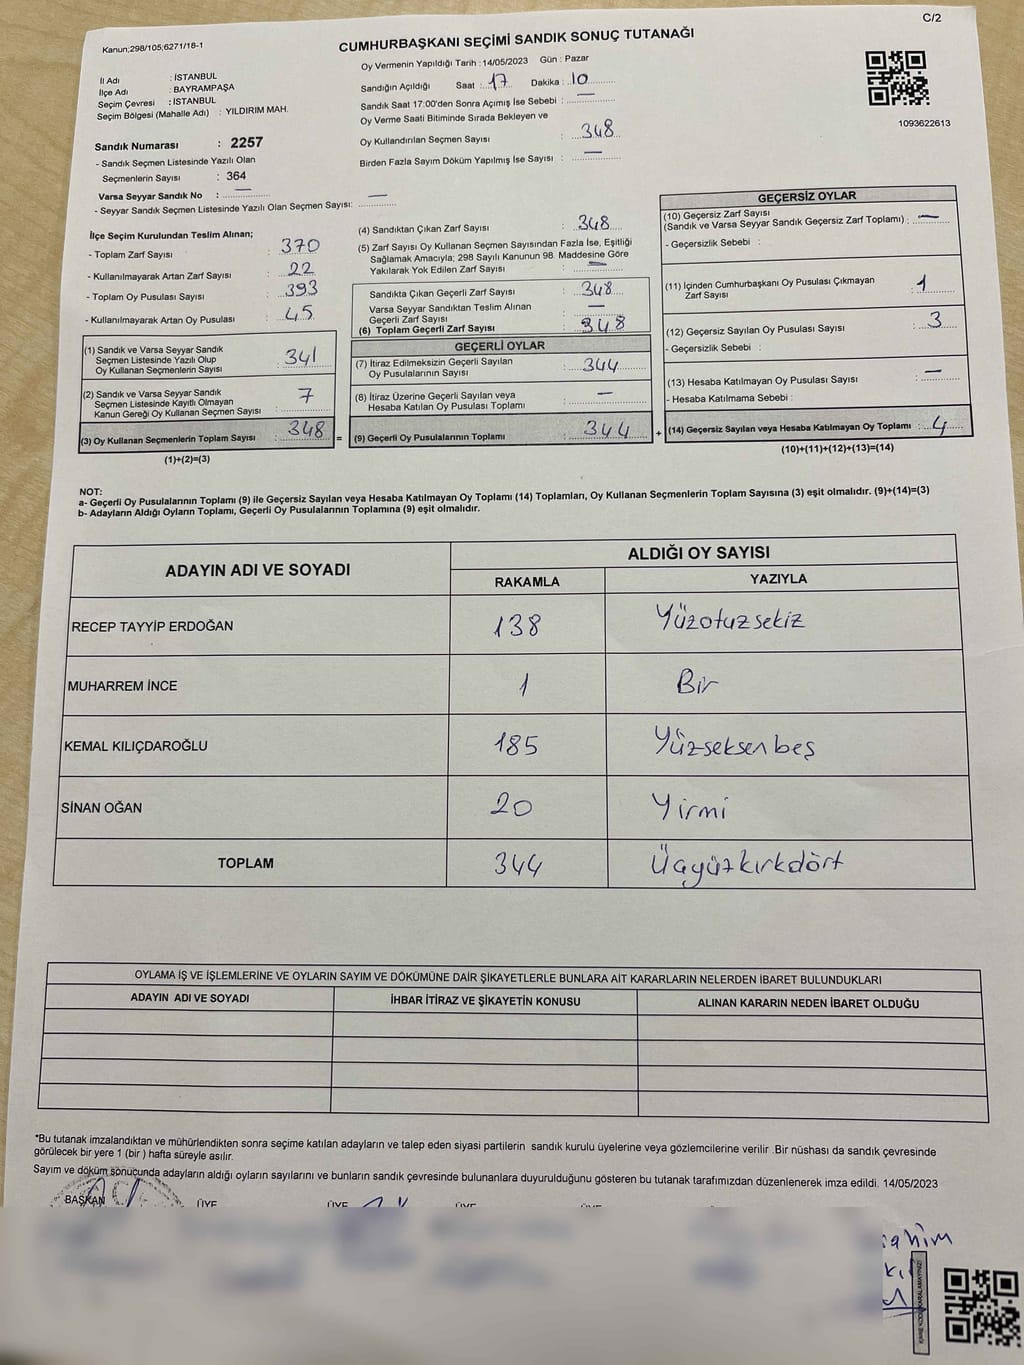 C/2
Kanun;298/105;6271/16-1
CUMHURBAŞKANI SEÇİMİ SANDIK SONUÇ TUTANAĞI
İl Adı : İSTANBUL
İlçe Adı : BAYRAMPAŞA
Seçim Çevresi : İSTANBUL
Seçim Bölgesi (Mahalle Adı) : YILDIRIM MAH.
Sandık Numarası : 2257
- Sandık Seçmen Listesinde Yazılı Olan
Seçmenlerin Sayısı : 364
Varsa Seyyar Sandık No : —
- Seyyar Sandık Seçmen Listesinde Yazılı Olan Seçmen Sayısı: —
Oy Vermenin Yapıldığı Tarih : 14/05/2023 Gün : Pazar
Sandığın Açıldığı Saat : 17 Dakika : 10
Sandık Saat 17:00'den Sonra Açımış İse Sebebi : —
Oy Verme Saati Bitiminde Sırada Bekleyen ve
Oy Kullandırılan Seçmen Sayısı : 348
Birden Fazla Sayım Döküm Yapılmış İse Sayısı : —
1093622613
İlçe Seçim Kurulundan Teslim Alınan;
- Toplam Zarf Sayısı : 370
- Kullanılmayarak Artan Zarf Sayısı : 22
- Toplam Oy Pusulası Sayısı : 393
- Kullanılmayarak Artan Oy Pusulası : 45
(1) Sandık ve Varsa Seyyar Sandık
Seçmen Listesinde Yazılı Olup
Oy Kullanan Seçmenlerin Sayısı : 341
(2) Sandık ve Varsa Seyyar Sandık
Seçmen Listesinde Kayıtlı Olmayan
Kanun Gereği Oy Kullanan Seçmen Sayısı : 7
(3) Oy Kullanan Seçmenlerin Toplam Sayısı : 348 =
(1)+(2)=(3)
(4) Sandıktan Çıkan Zarf Sayısı : 348
(5) Zarf Sayısı Oy Kullanan Seçmen Sayısından Fazla İse, Eşitliği
Sağlamak Amacıyla; 298 Sayılı Kanunun 98. Maddesine Göre
Yakılarak Yok Edilen Zarf Sayısı : —
Sandıkta Çıkan Geçerli Zarf Sayısı : 348
Varsa Seyyar Sandıktan Teslim Alınan
Geçerli Zarf Sayısı : —
(6) Toplam Geçerli Zarf Sayısı : 348
GEÇERLİ OYLAR
(7) İtiraz Edilmeksizin Geçerli Sayılan
Oy Pusulalarının Sayısı : 344
(8) İtiraz Üzerine Geçerli Sayılan veya
Hesaba Katılan Oy Pusulası Toplamı : —
(9) Geçerli Oy Pusulalarının Toplamı : 344 +
GEÇERSİZ OYLAR
(10) Geçersiz Zarf Sayısı
(Sandık ve Varsa Seyyar Sandık Geçersiz Zarf Toplamı) : —
- Geçersizlik Sebebi :
(11) İçinden Cumhurbaşkanı Oy Pusulası Çıkmayan
Zarf Sayısı : 1
(12) Geçersiz Sayılan Oy Pusulası Sayısı : 3
- Geçersizlik Sebebi :
(13) Hesaba Katılmayan Oy Pusulası Sayısı : —
- Hesaba Katılmama Sebebi :
(14) Geçersiz Sayılan veya Hesaba Katılmayan Oy Toplamı : 4
(10)+(11)+(12)+(13)=(14)
NOT:
a- Geçerli Oy Pusulalarının Toplamı (9) ile Geçersiz Sayılan veya Hesaba Katılmayan Oy Toplamı (14) Toplamları, Oy Kullanan Seçmenlerin Toplam Sayısına (3) eşit olmalıdır. (9)+(14)=(3)
b- Adayların Aldığı Oyların Toplamı, Geçerli Oy Pusulalarının Toplamına (9) eşit olmalıdır.
ADAYIN ADI VE SOYADI
ALDIĞI OY SAYISI
RAKAMLA YAZIYLA
RECEP TAYYİP ERDOĞAN 138 Yüzotuzsekiz
MUHARREM İNCE 1 Bir
KEMAL KILIÇDAROĞLU 185 Yüzseksenbeş
SİNAN OĞAN 20 Yirmi
TOPLAM 344 Üçyüzkırkdört
OYLAMA İŞ VE İŞLEMLERİNE VE OYLARIN SAYIM VE DÖKÜMÜNE DAİR ŞİKAYETLERLE BUNLARA AİT KARARLARIN NELERDEN İBARET BULUNDUKLARI
ADAYIN ADI VE SOYADI İHBAR İTİRAZ VE ŞİKAYETİN KONUSU ALINAN KARARIN NEDEN İBARET OLDUĞU
*Bu tutanak imzalandıktan ve mühürlendikten sonra seçime katılan adayların ve talep eden siyasi partilerin sandık kurulu üyelerine veya gözlemcilerine verilir .Bir nüshası da sandık çevresinde
görülecek bir yere 1 (bir ) hafta süreyle asılır.
Sayım ve döküm sonucunda adayların aldığı oyların sayılarını ve bunların sandık çevresinde bulunanlara duyurulduğunu gösteren bu tutanak tarafımızdan düzenlenerek imza edildi. 14/05/2023
BAŞKAN ÜYE ÜYE ÜYE ÜYE